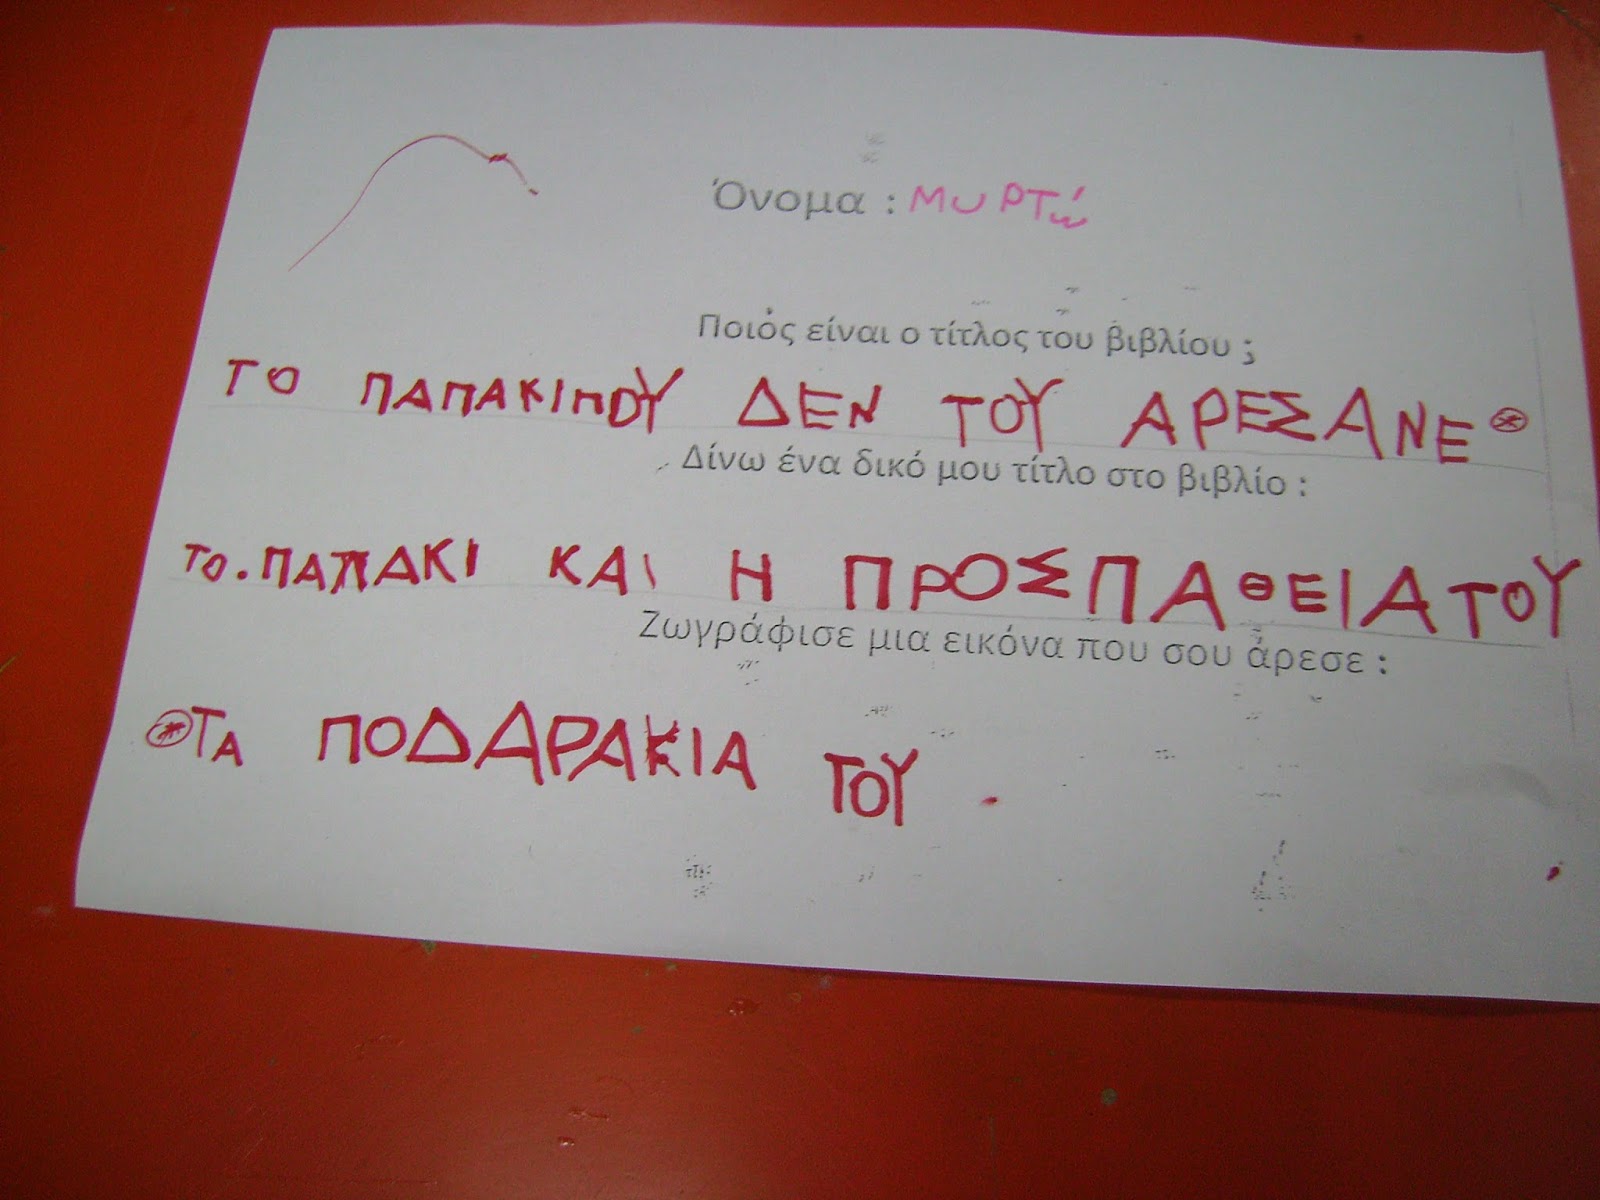 Όνομα : ΜυΡΤώ
Ποιός είναι ο τίτλος του βιβλίου ;
ΤΟ ΠΑΠΑΚΙ ΠΟΥ ΔΕΝ ΤΟΥ ΑΡΕΣΑΝΕ *
Δίνω ένα δικό μου τίτλο στο βιβλίο :
ΤΟ. ΠΑΠΑΚΙ ΚΑΙ Η ΠΡΟΣΠΑΘΕΙΑ ΤΟΥ
Ζωγράφισε μια εικόνα που σου άρεσε :
* ΤΑ ΠΟΔΑΡΑΚΙΑ ΤΟΥ .